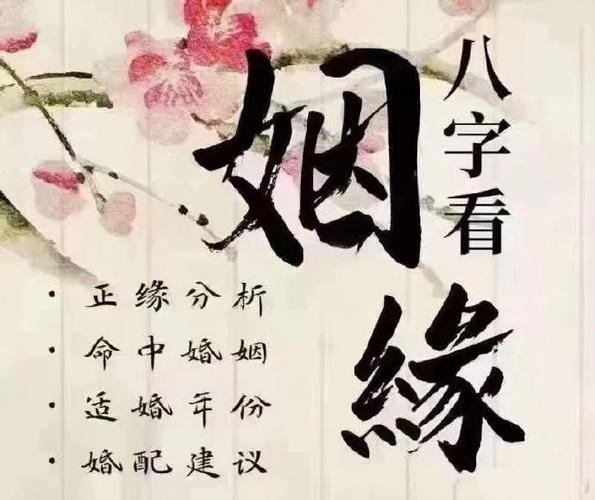 八字看
姻緣
· 正缘分析
· 命中婚姻
· 适婚年份
· 婚配建议